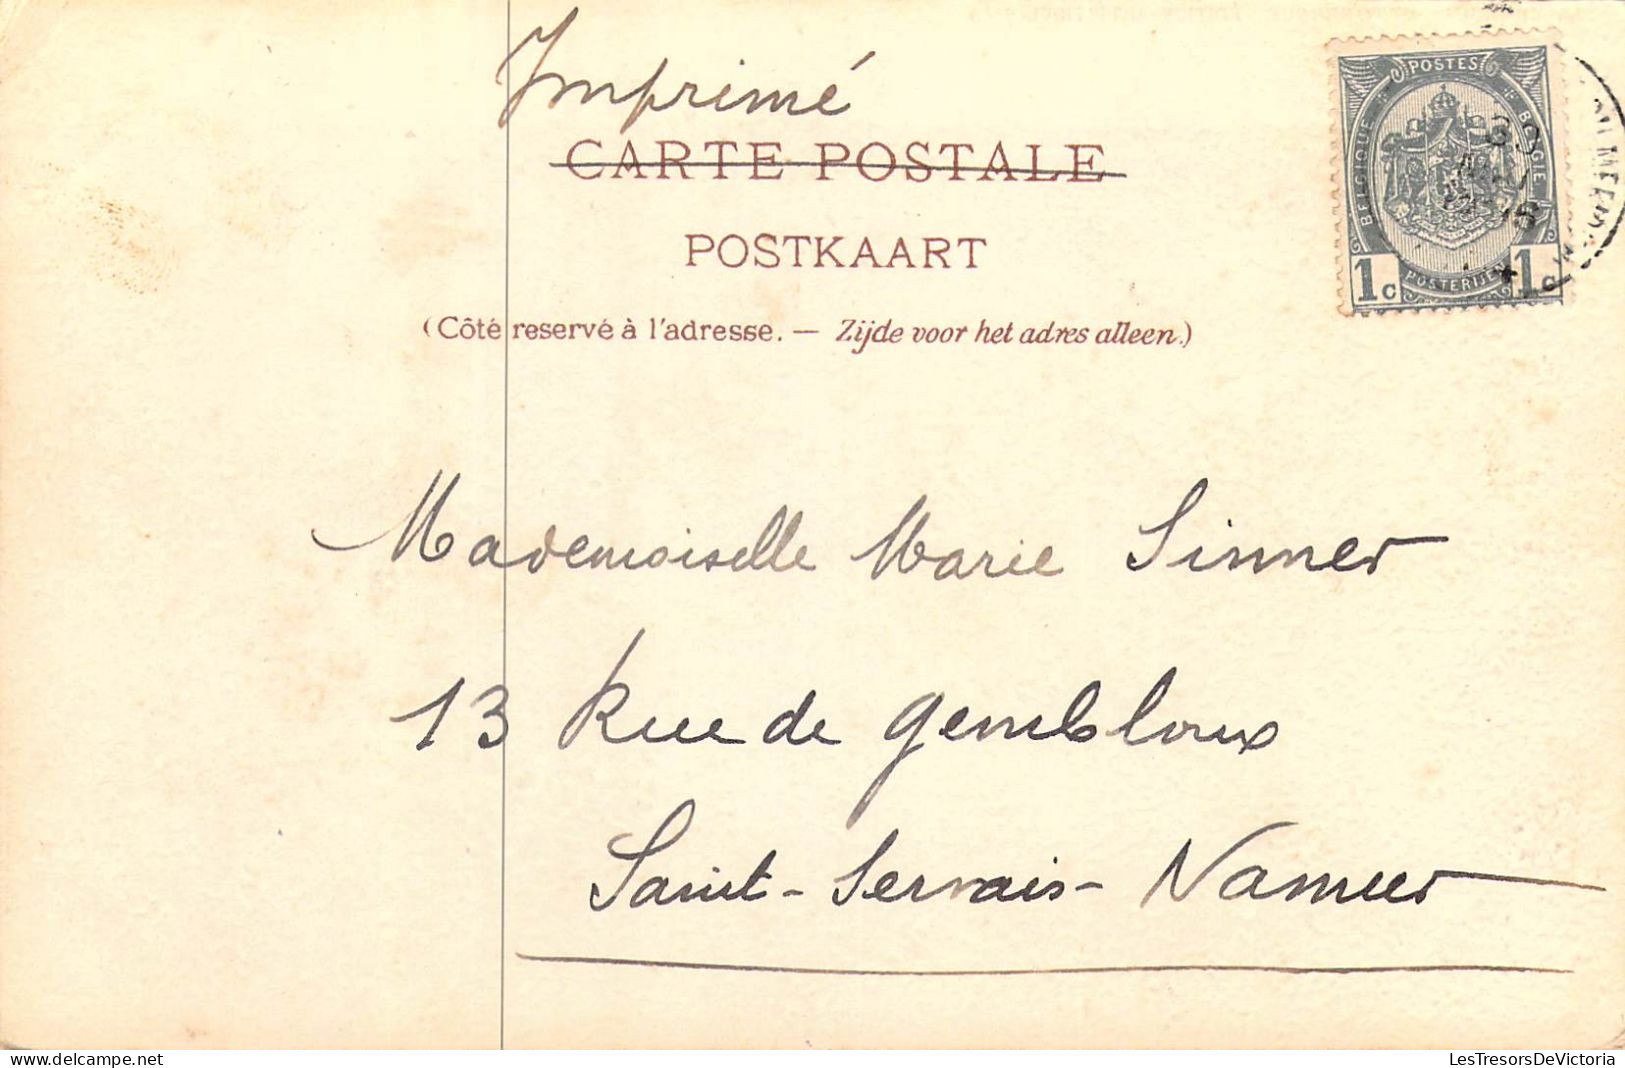 Imprimé
CARTE POSTALE
POSTKAART
(Côté reservé à l'adresse. — Zijde voor het adres alleen.)
POSTES
BELGIQUE
BELGIE
POSTERIJEN
1c
1c
Mademoiselle Marie Sinner
13 Rue de Gembloux
Saint-Servais-Namur
delcampe.net
LesTresorsDeVictoria